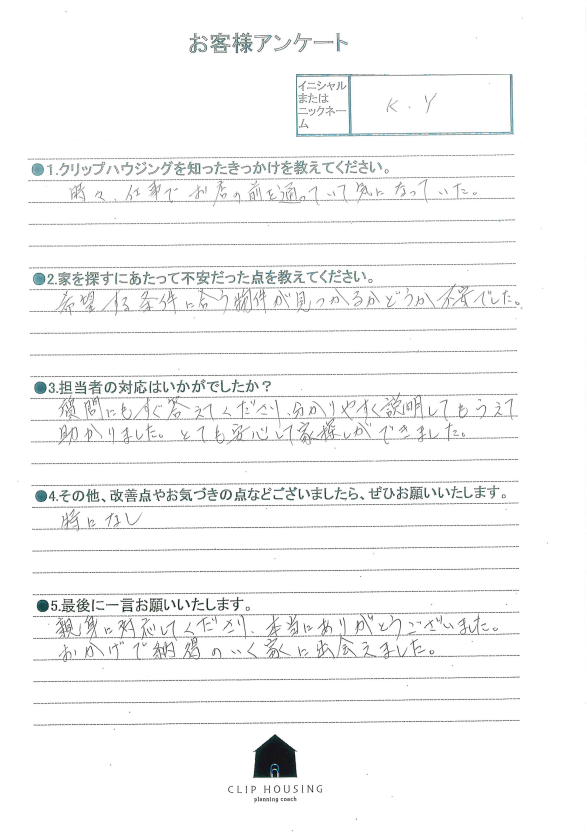 お客様アンケート
イニシャル
または
ニックネー
ム
K.Y
●1.クリップハウジングを知ったきっかけを教えてください。
時々、仕事でお店の前を通っていて気になっていた。
●2.家を探すにあたって不安だった点を教えてください。
希望する条件に合う物件が見つかるかどうか不安でした。
●3.担当者の対応はいかがでしたか？
質問にもすぐ答えてくださり、分かりやすく説明してもらえて
助かりました。とても安心して家探しができました。
●4.その他、改善点やお気づきの点などございましたら、ぜひお願いいたします。
特になし
●5.最後に一言お願いいたします。
親身に対応してくださり、本当にありがとうございました。
おかげで納得のいく家に出会えました。
CLIP HOUSING
planning coach